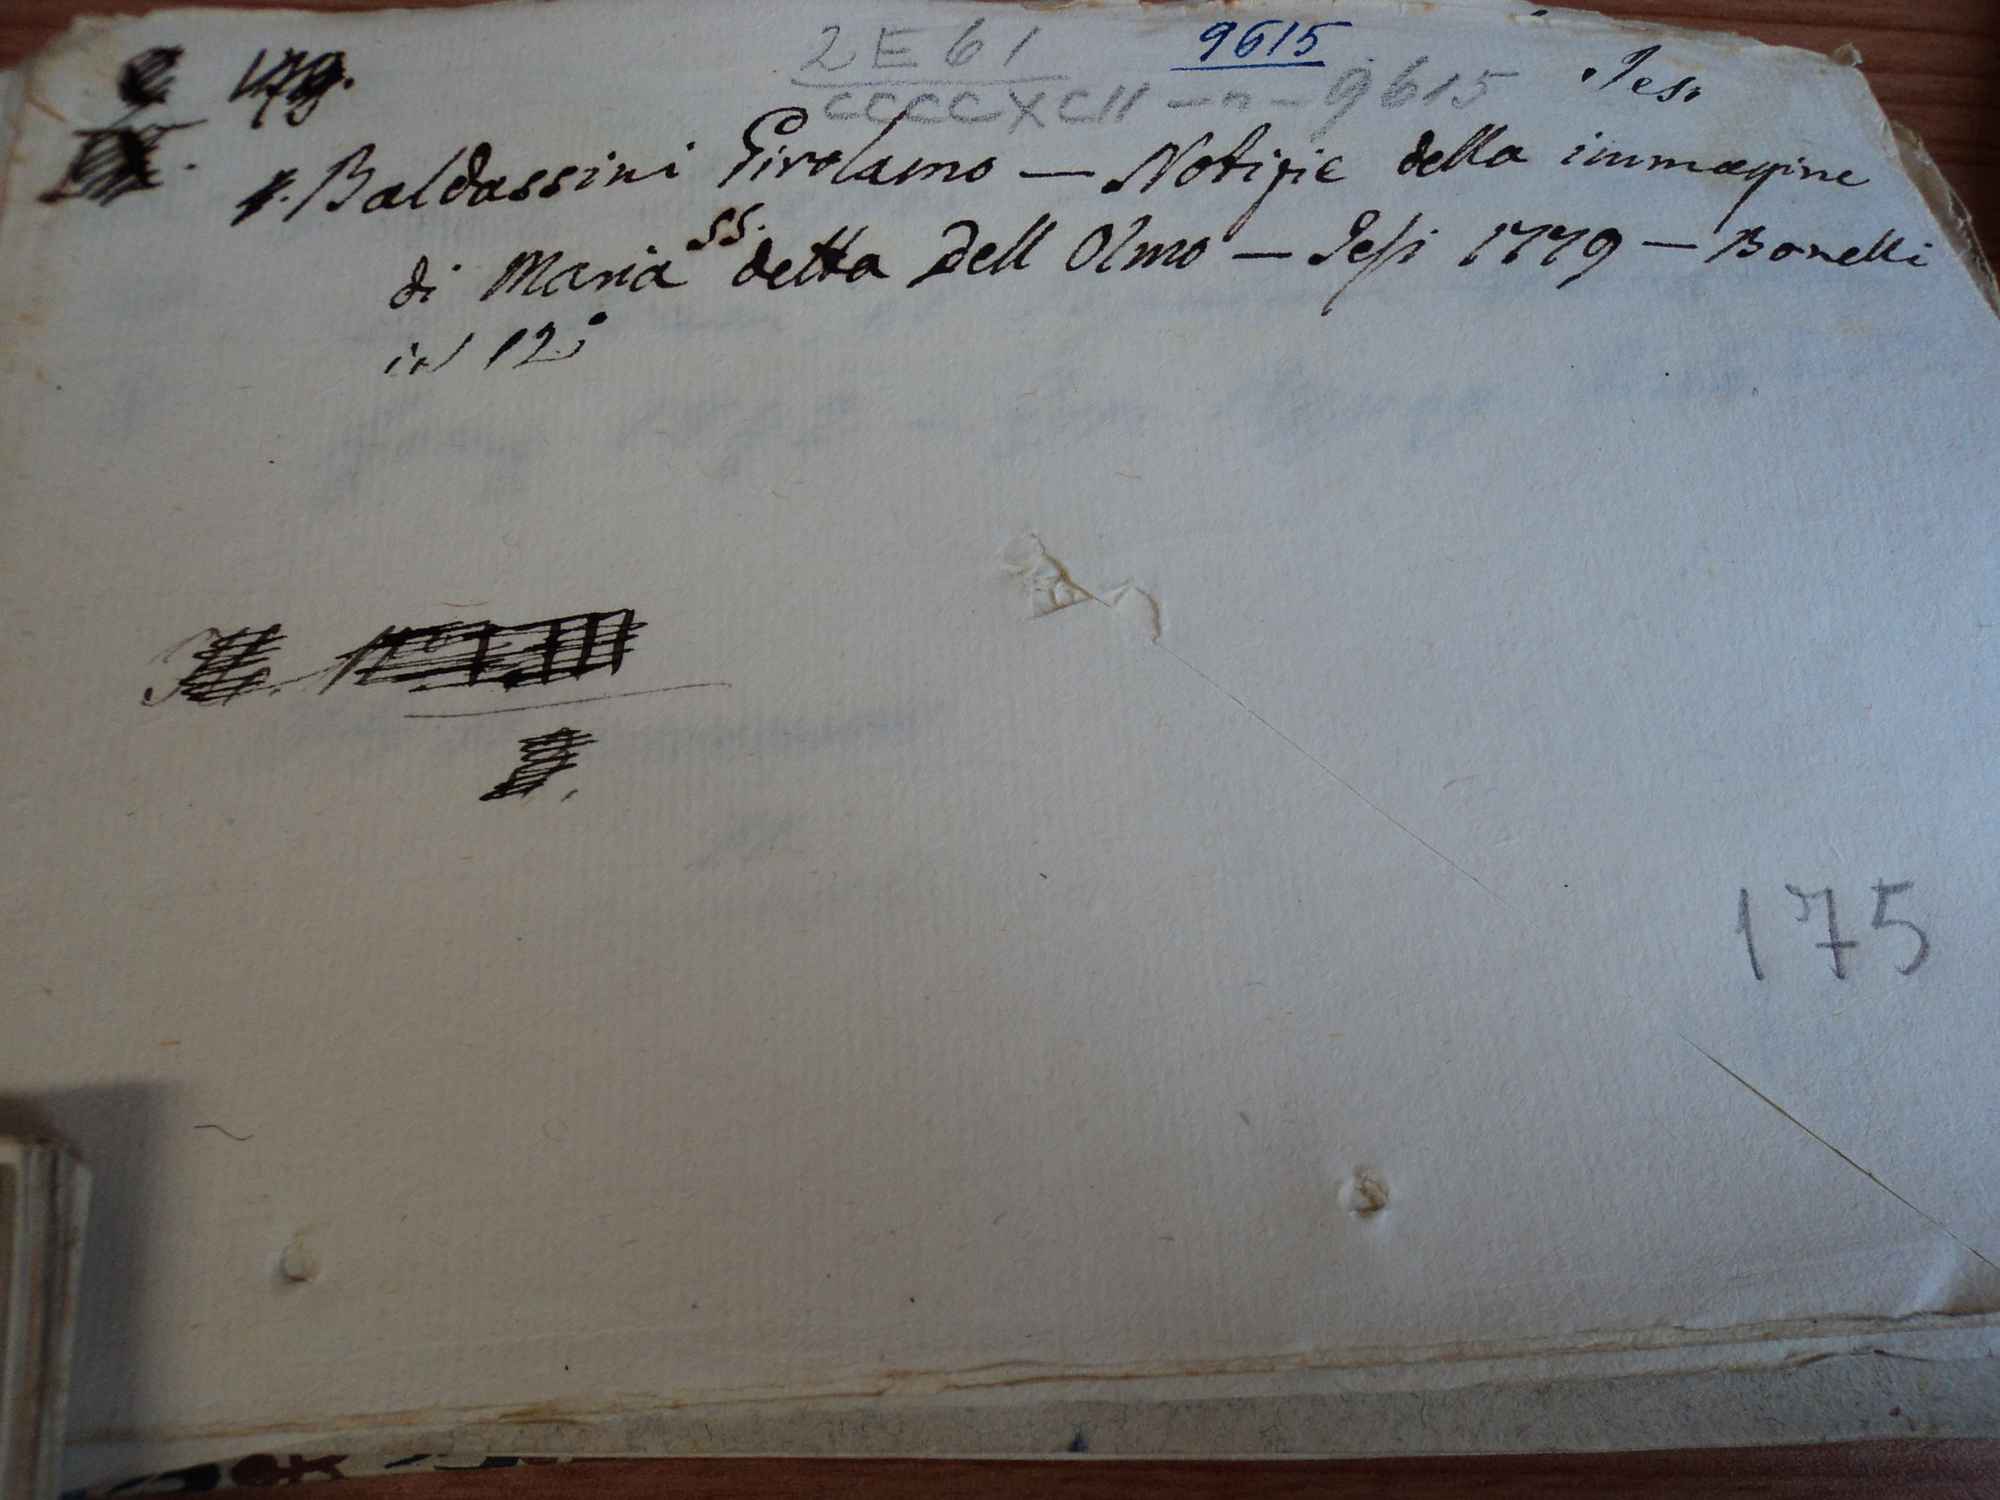 2E61
9615
CCCCXCII - n - 9615
Jesi
Baldassini Girolamo — Notizie della immagine
di Maria SS. detta Dell Olmo — Jesi 1779 — Bonelli
in 12°
175